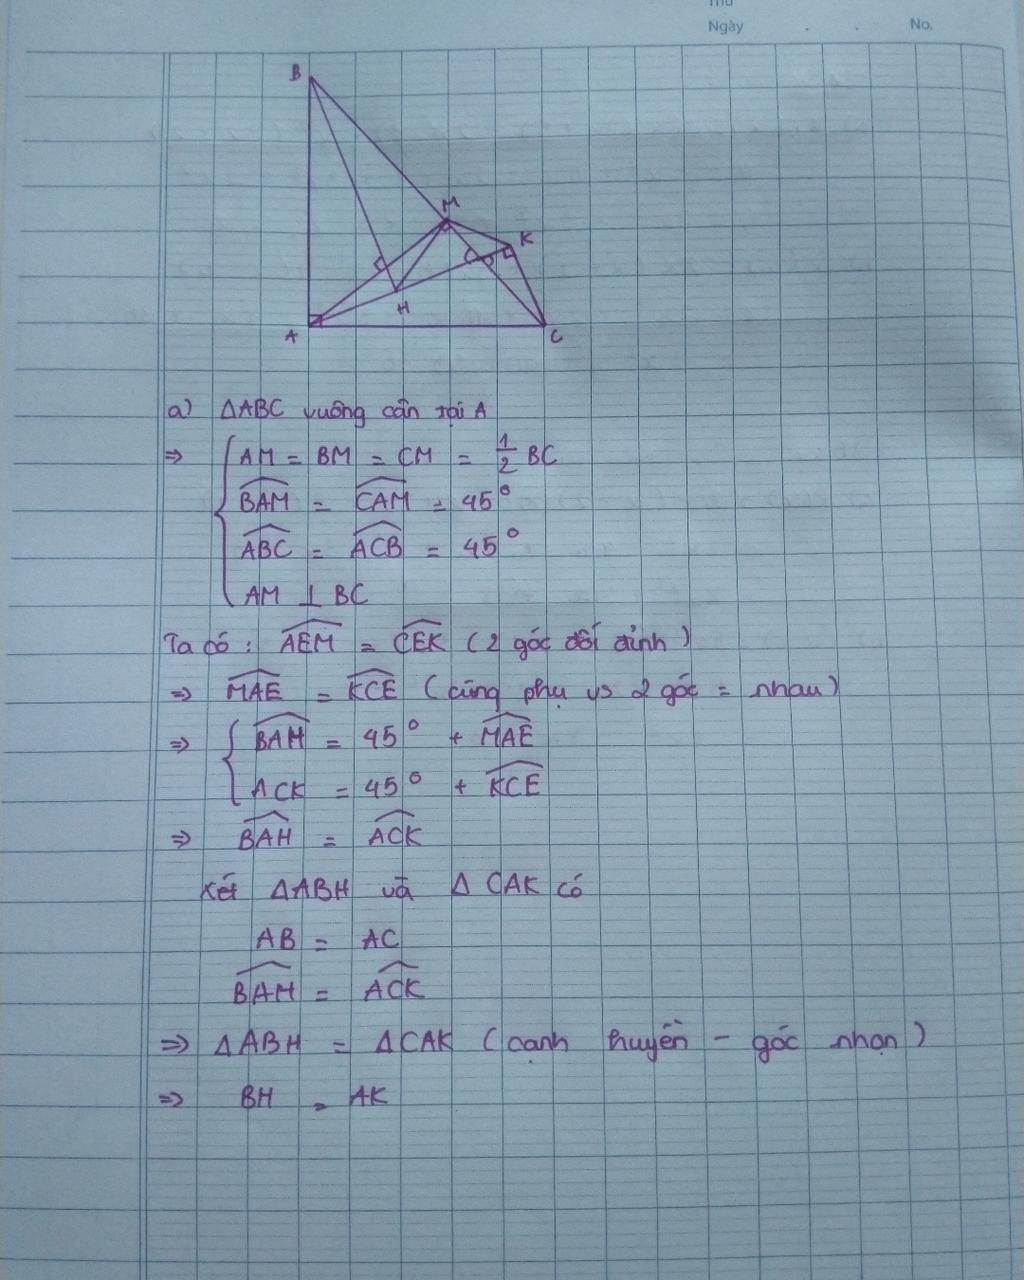 Thứ
Ngày . . No.
B
M
K
H
A
C
a) ΔABC vuông cân tại A
⇒ { AM = BM = CM = 1/2 BC
BAM = CAM = 45°
ABC = ACB = 45°
AM ⊥ BC
Ta có : AEM = CEK (2 góc đối đỉnh)
⇒ MAE = KCE (cùng phụ vs 2 góc = nhau)
⇒ { BAH = 45° + MAE
ACK = 45° + KCE
⇒ BAH = ACK
Xét ΔABH và ΔCAK có
AB = AC
BAH = ACK
⇒ ΔABH = ΔCAK (cạnh huyền - góc nhọn)
⇒ BH = AK